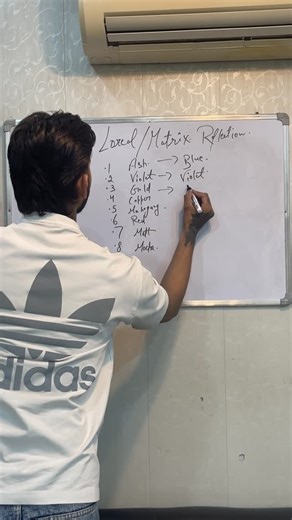 Loreal / Matrix Reflection.
.1 Ash. → Blue.
.2 Violet → Violet.
.3 Gold →
.4 Copper
.5 Mahogany.
6 Red
.7 Matt
.8 Mocha.
adidas